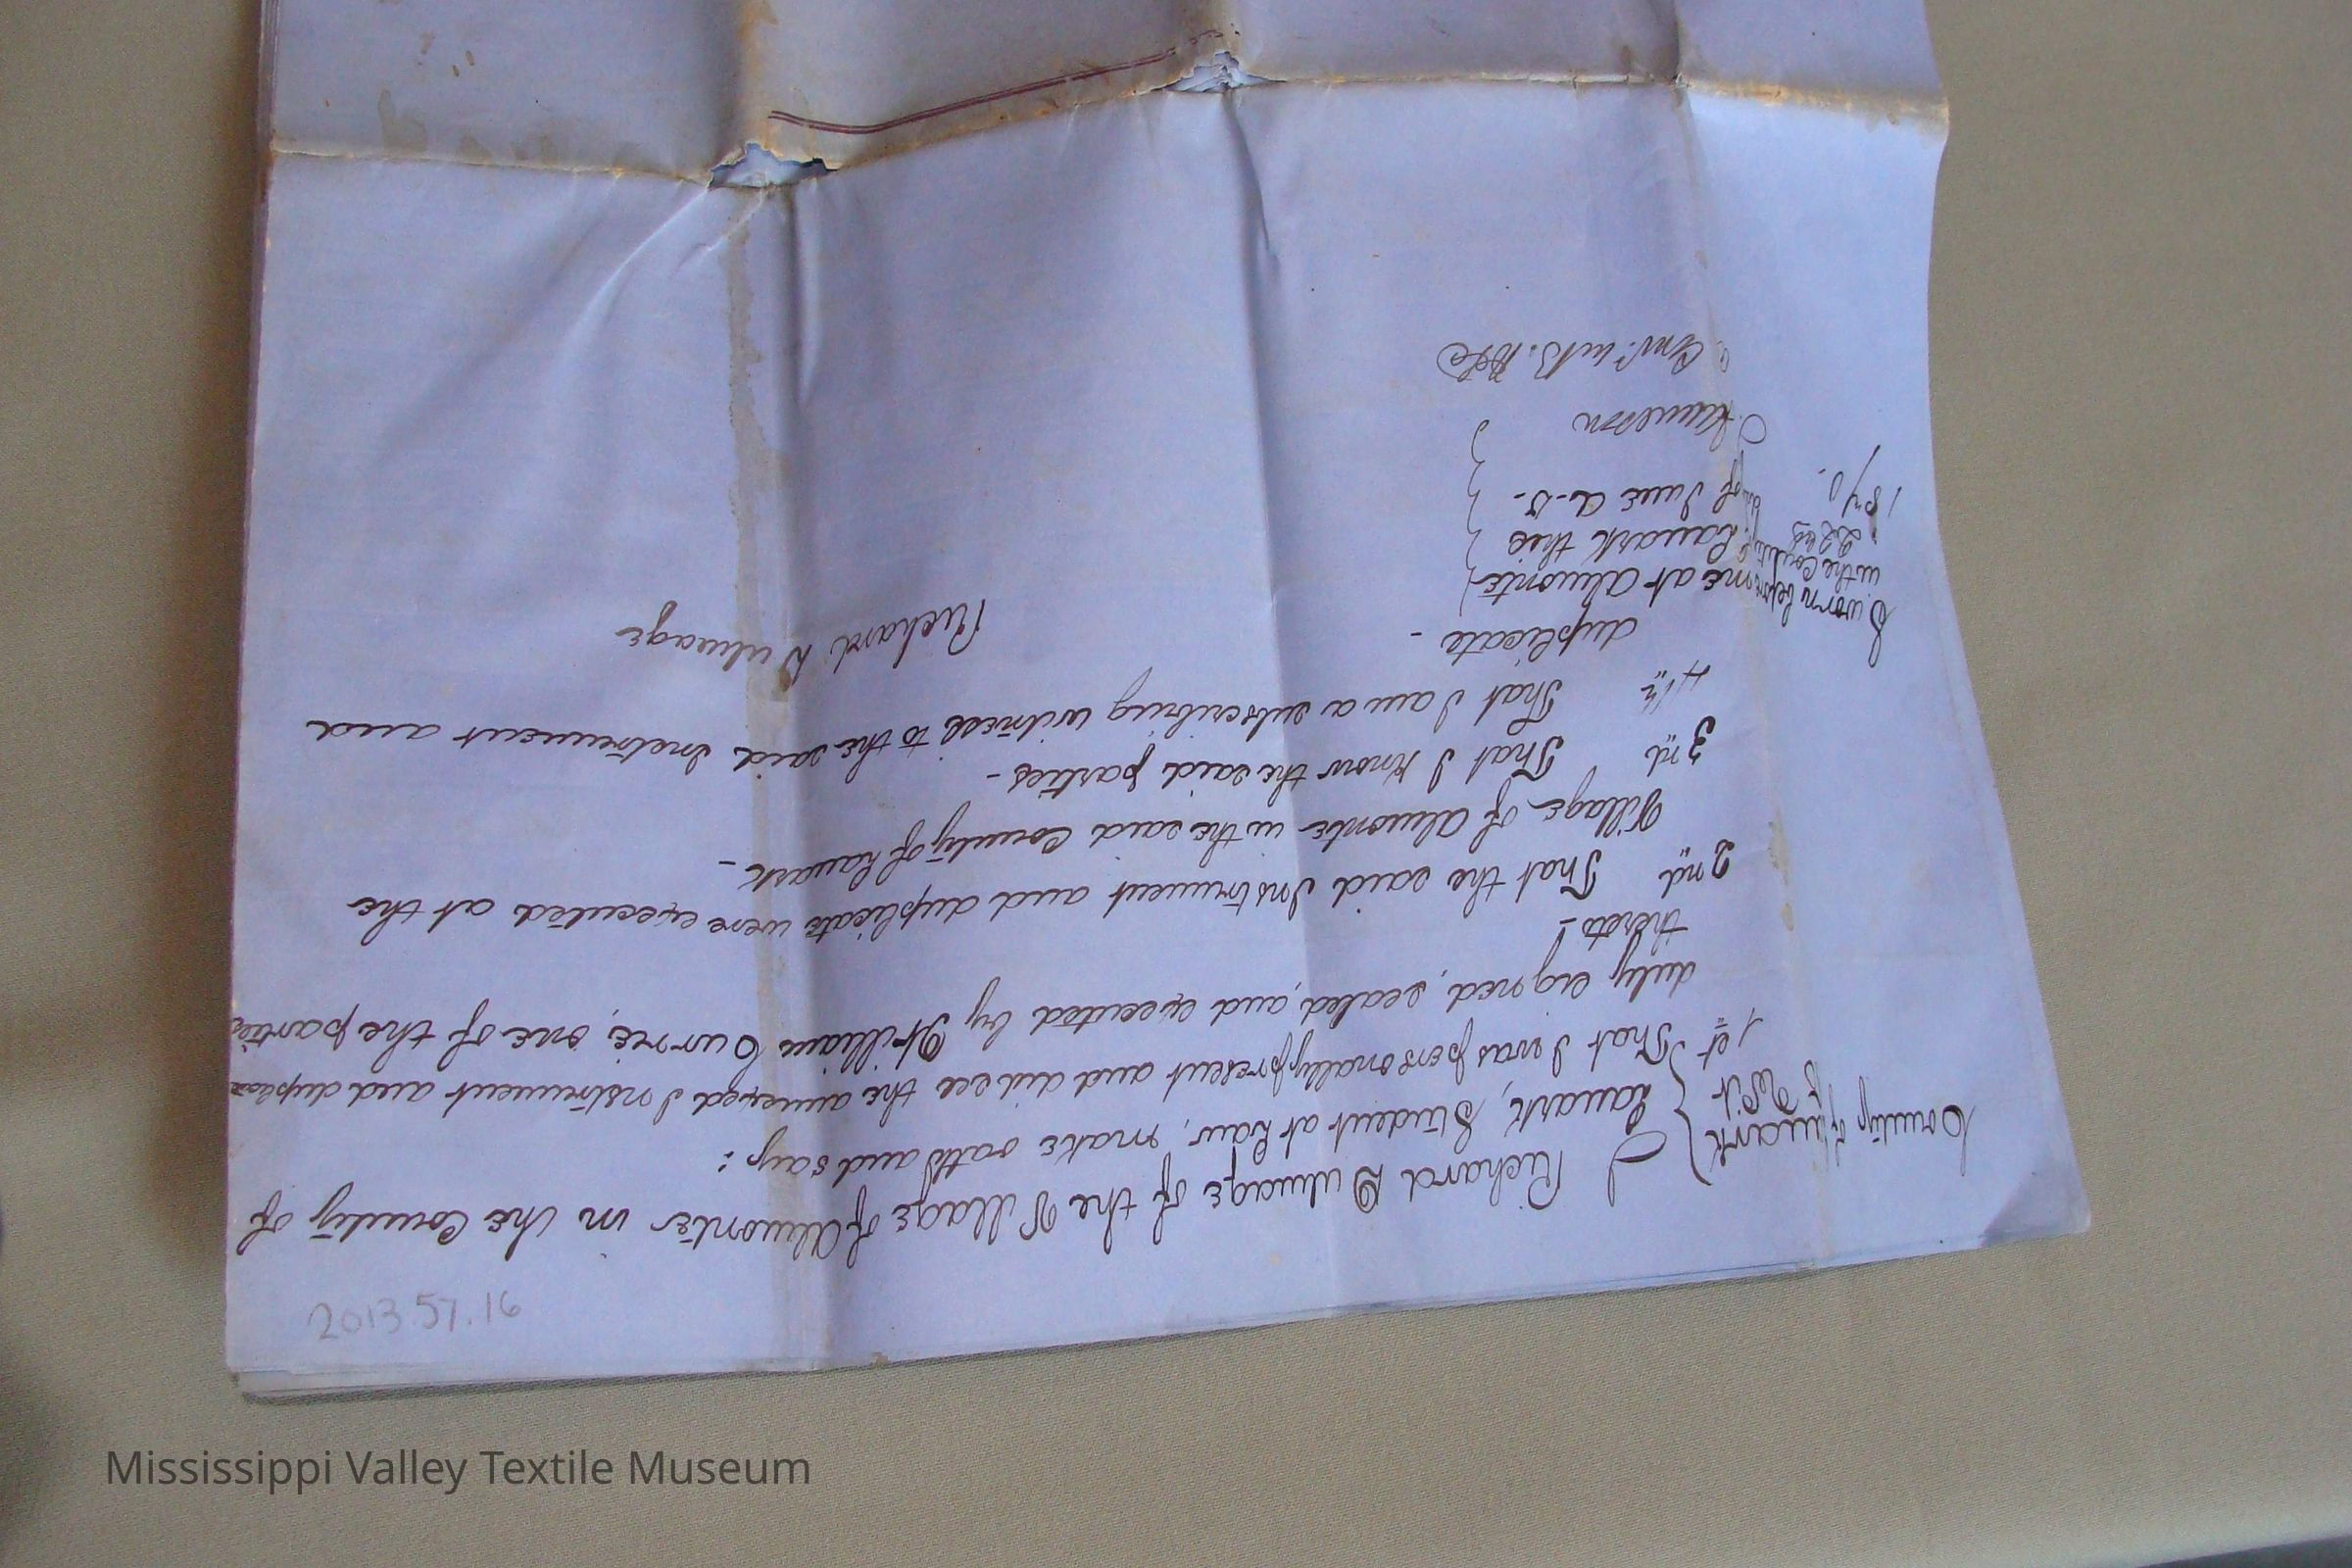 County of Lanark
To Wit
I Richard Dulmage of the Village of Almonte in the County of
Lanark, Student at Law, make oath and say:
1st That I was personally present and did see the annexed Instrument and duplicate
duly signed, sealed, and executed by William Currie, one of the parties
thereto!-
2nd That the said Instrument and duplicate were executed at the
Village of Almonte in the said County of Lanark -
3rd That I know the said parties -
4th That I am a subscribing witness to the said Instrument and
duplicate -
Richard Dulmage
Sworn before me at Almonte
in the County of Lanark this
22nd day of June A.D.
1870.
Jamieson
2013.57.16
Mississippi Valley Textile Museum